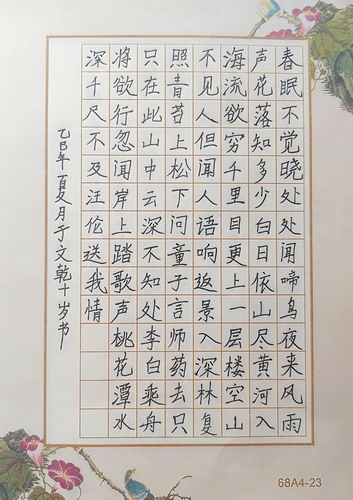 春眠不觉晓处处闻啼鸟夜来风雨
声花落知多少白日依山尽黄河入
海流欲穷千里目更上一层楼空山
不见人但闻人语响返景入深林复
照青苔上松下问童子言师药去只
只在此山中云深不知处李白乘舟
将欲行忽闻岸上踏歌声桃花潭水
深千尺不及汪伦送我情
乙巳年夏月于文乾十岁书
68A4-23